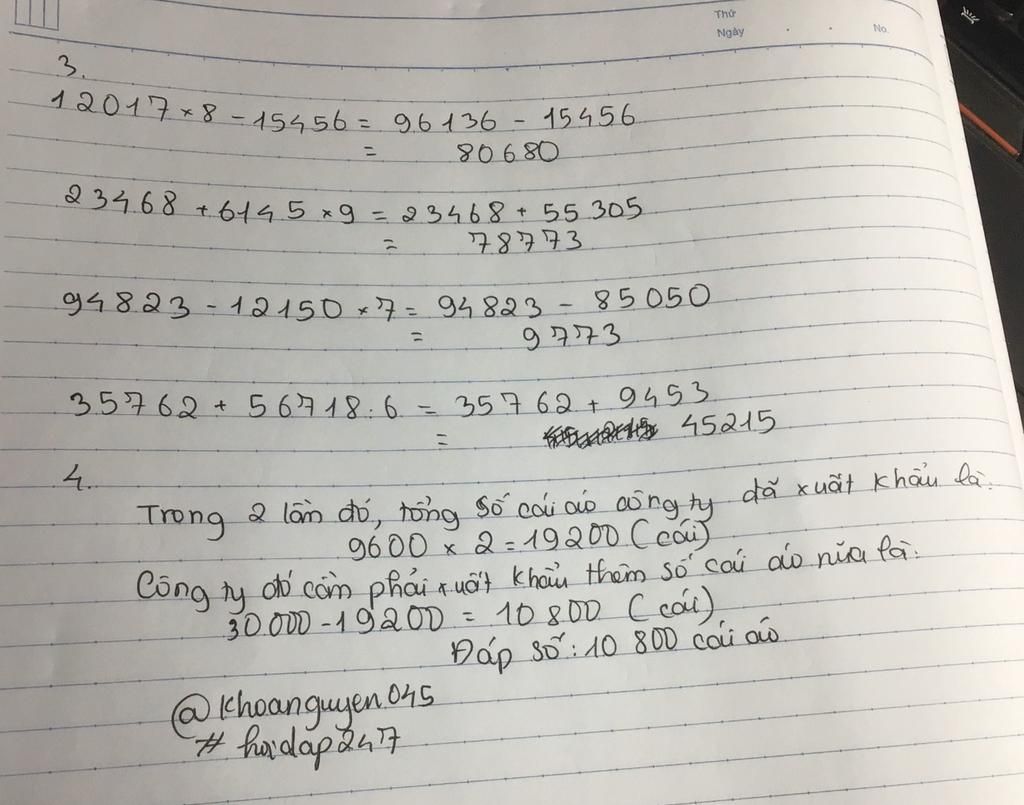 Thứ
Ngày
No.
3.
12017 × 8 - 15456 = 96136 - 15456
= 80680
23468 + 6145 × 9 = 23468 + 55305
= 78773
94823 - 12150 × 7 = 94823 - 85050
= 9773
35762 + 56718 : 6 = 35762 + 9453
= 45215
4.
Trong 2 lần đó, tổng số cái áo công ty đã xuất khẩu là:
9600 × 2 = 19200 (cái)
Công ty đó cần phải xuất khẩu thêm số cái áo nữa là:
30000 - 19200 = 10800 (cái)
Đáp số: 10 800 cái áo
@khoanguyen045
# hoidap247